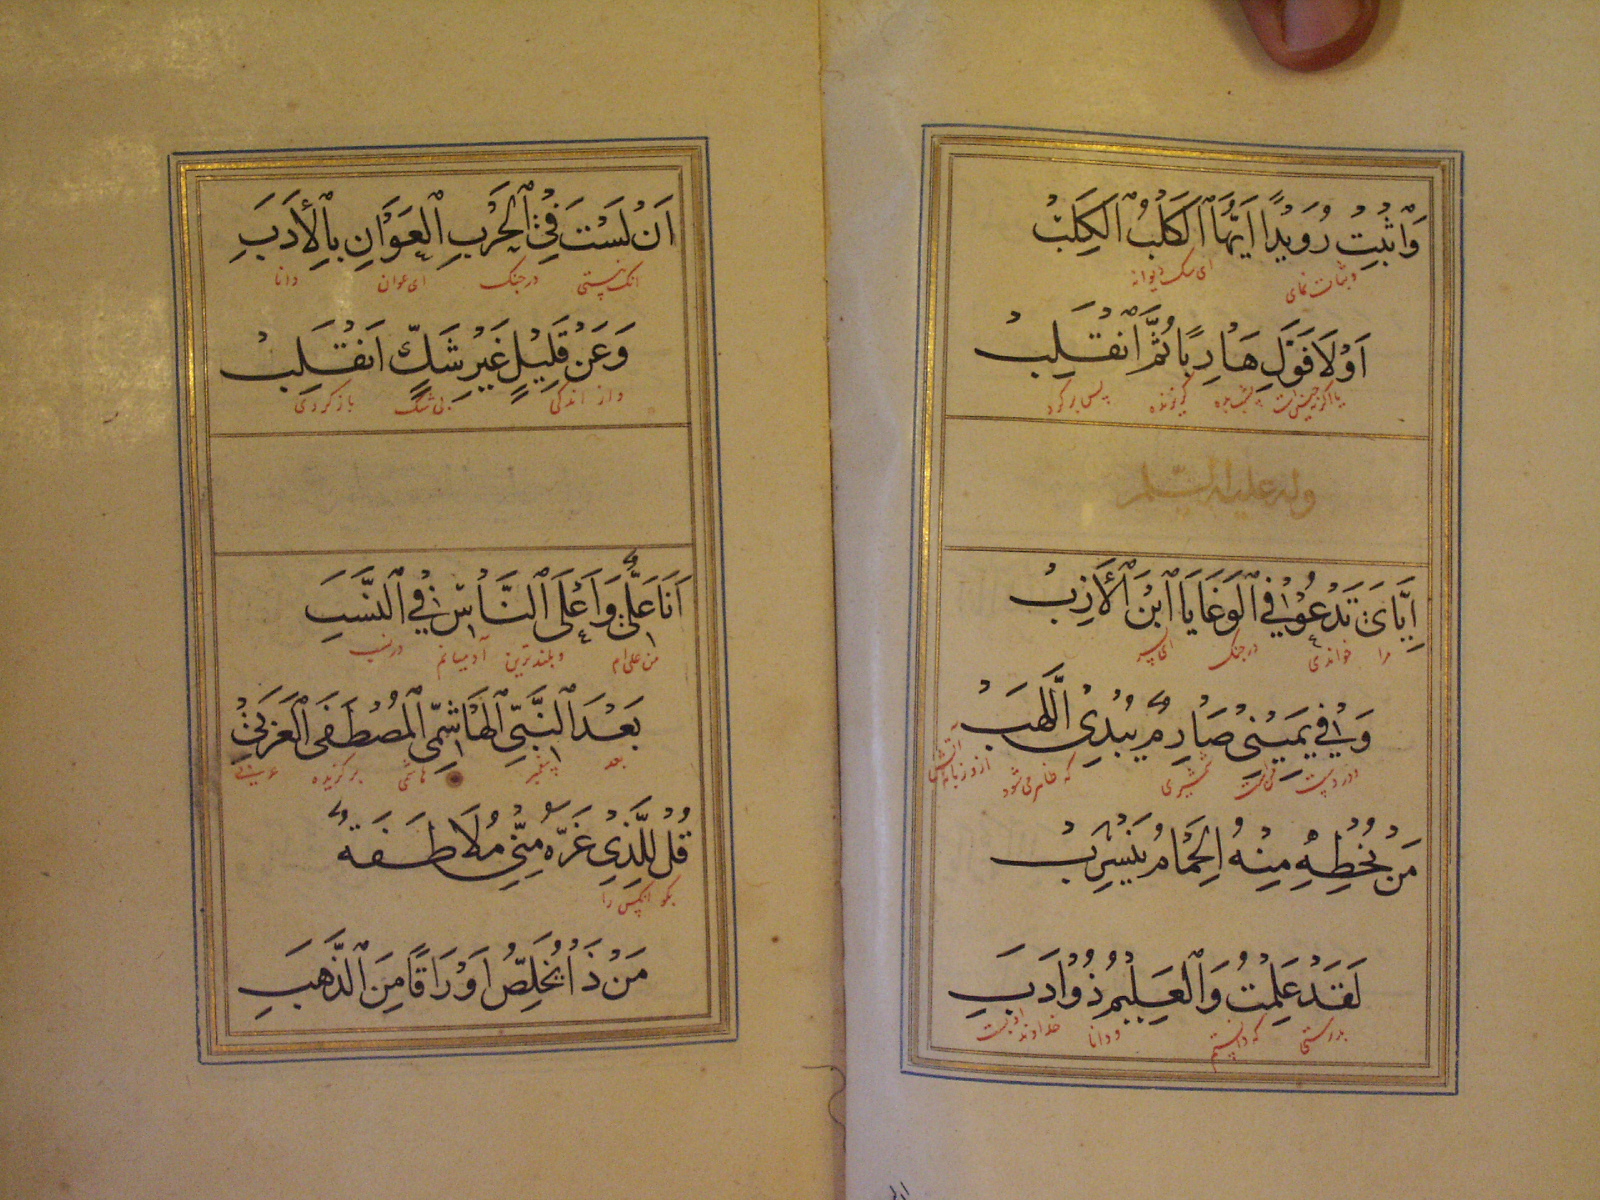 وَاثْبُتْ رُوَيْدًا اَيُّهَا الْكَلْبُ الْكَلِبْ
وثبات نمای ای سک دیوانه
اَوْلَا فَوَلِّ هَارِبًا ثُمَّ انْقَلِبْ
کریزنده پس برکرد
وله علیه السلم
اِيَّايَ تَدْعُوْ فِي الْوَغَا يَا ابْنَ الْأَرِبْ
مرا خواندی در جنک ای پسر
وَفِيْ يَمِيْنِيْ صَارِمٌ يُبْدِي اللَّهَبْ
شمشیری که ظاهر می شود
مَنْ يُخْطِهِ مِنْهُ الْحِمَامُ يَنْسَرِبْ
لَقَدْ عَلِمْتُ وَالْعَلِيْمُ ذُوْ اَدَبِ
بدرستی که دانستم و دانا خداوند ادبست
اَنْ لَسْتَ فِي الْحَرْبِ الْعَوَانِ بِالْأَدَبِ
انک نیستی در جنک ای عوان دانا
وَعَنْ قَلِيْلٍ غَيْرِ شَكٍّ اَنْقَلِبْ
واز اندکی بی شک بازکردی
اَنَا عَلِيٌّ وَاَعْلَى النَّاسِ فِي النَّسَبِ
من علی ام و بلندترین آدمیانم در نسب
بَعْدَ النَّبِيِّ الْهَاشِمِيِّ الْمُصْطَفَى الْعَرَبِيْ
بعد پیغمبر هاشمی برکزیده عربی
قُلْ لِلَّذِيْ غَرَّهُ مِنِّيْ مُلَاطَفَةٌ
بکو انکس را
مَنْ ذَا يُخَلِّصُ اَوْرَاقًا مِنَ الذَّهَبِ